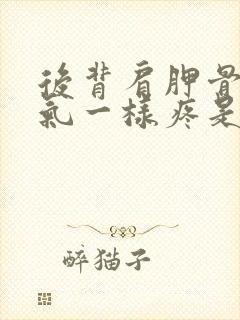 後背肩胛骨
氣一樣疼是
醉猫子